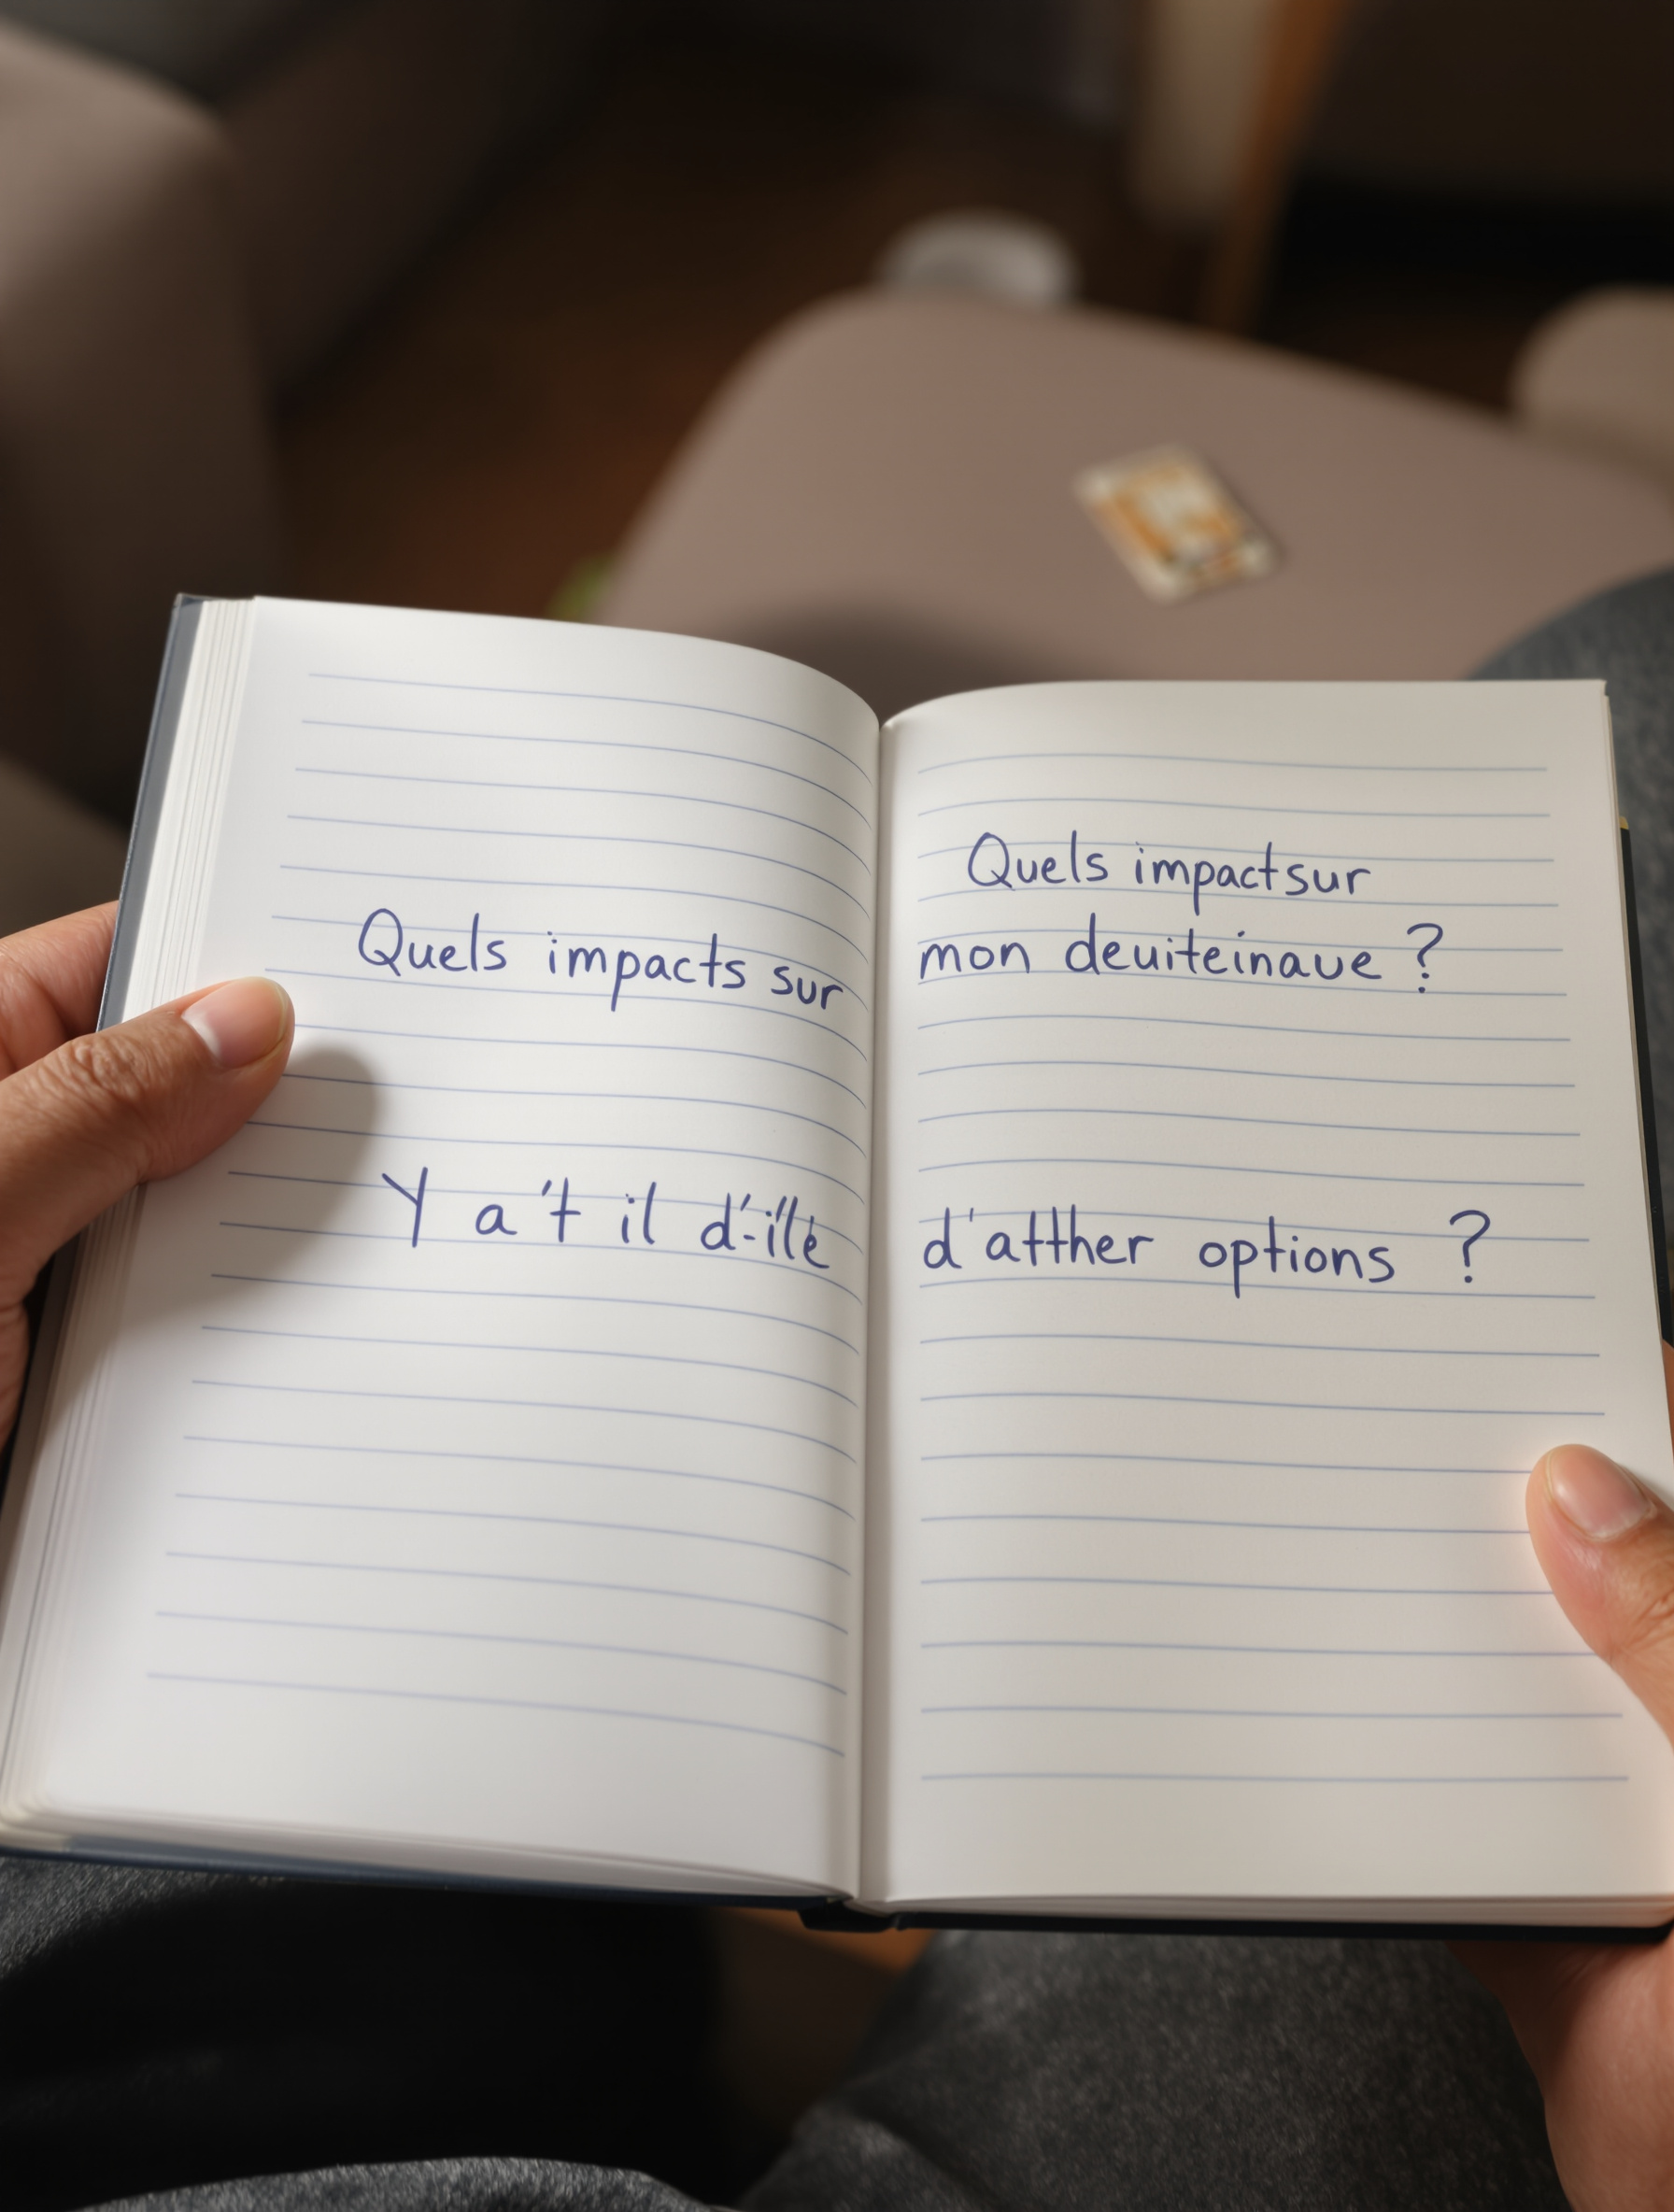 Quels impacts sur
Y a't il d'-ille
Quels impactsur
mon deuiteinaue ?
d'atther options ?